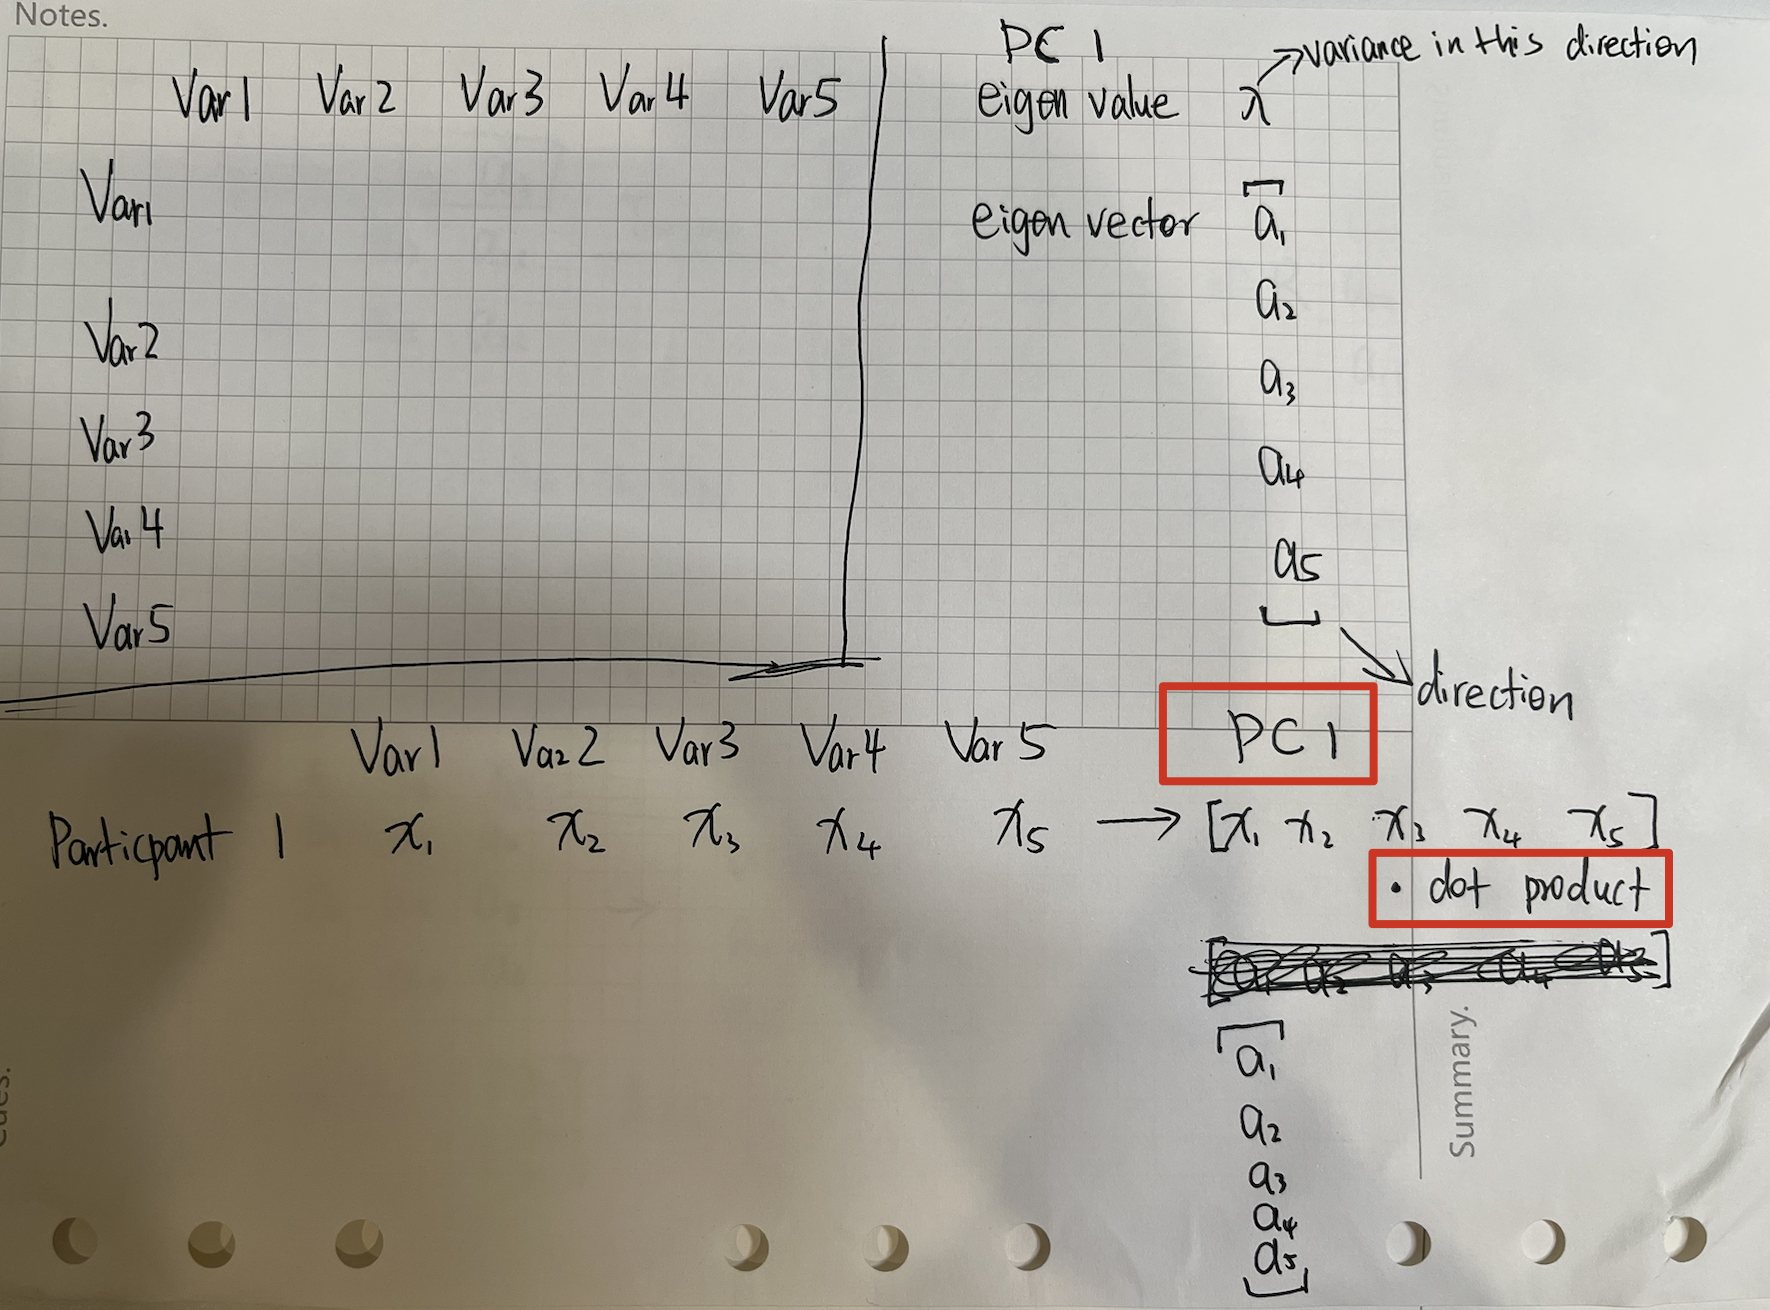 Notes.
Var1 Var2 Var3 Var4 Var5
Var1
Var2
Var3
Var4
Var5
PC 1
eigen value λ → variance in this direction
eigen vector [a₁
a₂
a₃
a₄
a₅]
direction
Var1 Var2 Var3 Var4 Var5 PC 1
Particpant 1 x₁ x₂ x₃ x₄ x₅ → [x₁ x₂ x₃ x₄ x₅]
• dot product
[a₁
a₂
a₃
a₄
a₅]
Summary.